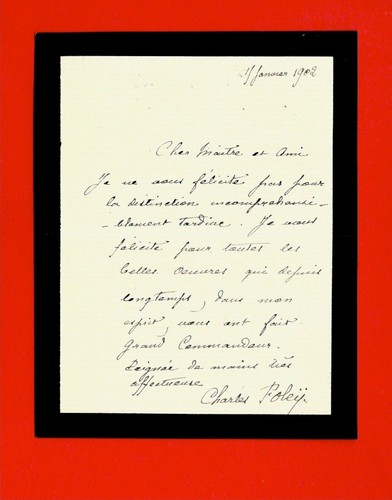 Janvier 1902
Cher Maître et Ami
Je ne vous félicite pas pour
la distinction incompréhensi-
-blement tardive. Je vous
félicite pour toutes les
belles oeuvres qui depuis
longtemps, dans mon
esprit, vous ont fait
Grand Commandeur.
Poignée de mains très
affectueuse
Charles Foleÿ.